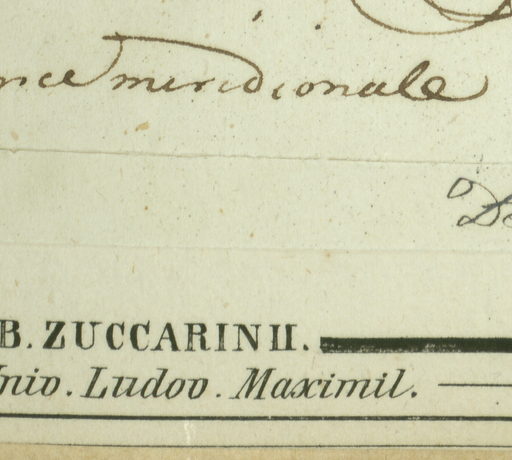 nce meridionale
B. ZUCCARINII.
Univ. Ludov. Maximil.